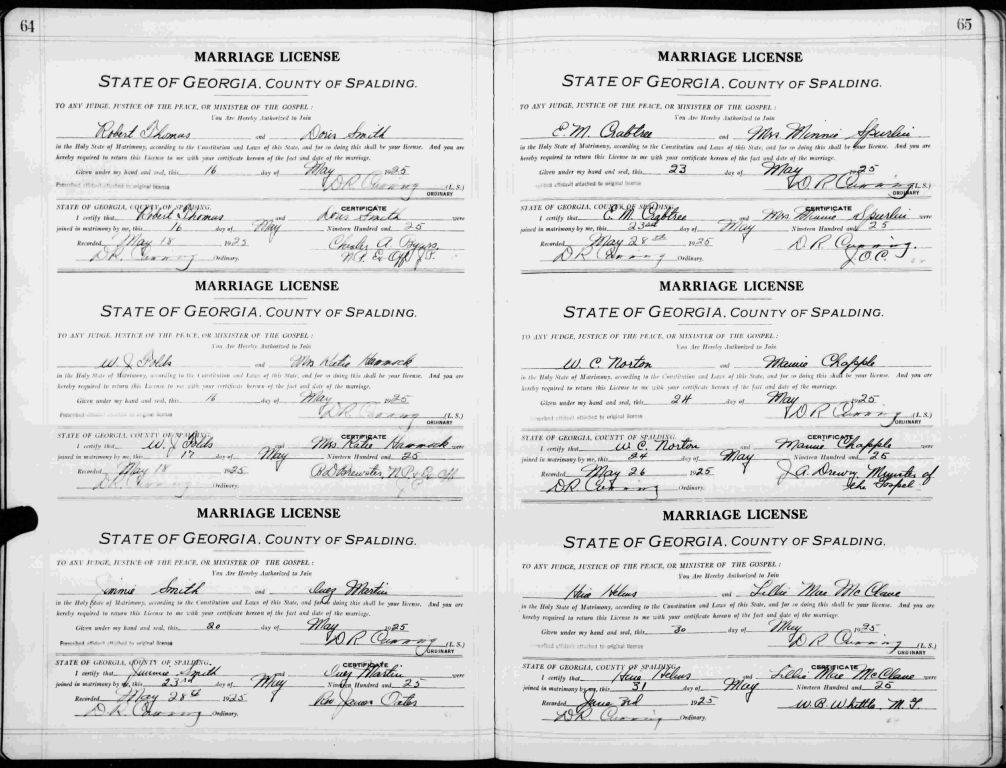 64
MARRIAGE LICENSE
STATE OF GEORGIA, COUNTY OF SPALDING.
TO ANY JUDGE, JUSTICE OF THE PEACE, OR MINISTER OF THE GOSPEL:
You Are Hereby Authorized to Join
Robert Thomas and Doris Smith
in the Holy State of Matrimony, according to the Constitution and Laws of this State, and for so doing this shall be your license. And you are
hereby required to return this License to me with your certificate hereon of the fact and date of the marriage.
Given under my hand and seal, this 16 day of May 1925
Prescribed affidavit attached to original license D R (L. S.)
ORDINARY
STATE OF GEORGIA, COUNTY OF SPALDING. CERTIFICATE
I certify that Robert Thomas and Doris Smith were
joined in matrimony by me, this 16 day of May Nineteen Hundred and 25
Recorded May 18 1925 A
D R Ordinary.
MARRIAGE LICENSE
STATE OF GEORGIA, COUNTY OF SPALDING.
TO ANY JUDGE, JUSTICE OF THE PEACE, OR MINISTER OF THE GOSPEL:
You Are Hereby Authorized to Join
W. J. and Mrs Katie Hammock
in the Holy State of Matrimony, according to the Constitution and Laws of this State, and for so doing this shall be your license. And you are
hereby required to return this License to me with your certificate hereon of the fact and date of the marriage.
Given under my hand and seal, this 16 day of May 1925
Prescribed affidavit attached to original license D R (L. S.)
ORDINARY
STATE OF GEORGIA, COUNTY OF SPALDING. CERTIFICATE
I certify that W. J. and Mrs Katie Hammock were
joined in matrimony by me, this 17 day of May Nineteen Hundred and 25
Recorded May 18 1925 Brewster
D R Ordinary.
MARRIAGE LICENSE
STATE OF GEORGIA, COUNTY OF SPALDING.
TO ANY JUDGE, JUSTICE OF THE PEACE, OR MINISTER OF THE GOSPEL:
You Are Hereby Authorized to Join
Jimmie Smith and Inez Martin
in the Holy State of Matrimony, according to the Constitution and Laws of this State, and for so doing this shall be your license. And you are
hereby required to return this License to me with your certificate hereon of the fact and date of the marriage.
Given under my hand and seal, this 20 day of May 1925
Prescribed affidavit attached to original license D R (L. S.)
ORDINARY
STATE OF GEORGIA, COUNTY OF SPALDING. CERTIFICATE
I certify that Jimmie Smith and Inez Martin were
joined in matrimony by me, this 23rd day of May Nineteen Hundred and 25
Recorded May 28th 1925 Rev James
D R Ordinary.
65
MARRIAGE LICENSE
STATE OF GEORGIA, COUNTY OF SPALDING.
TO ANY JUDGE, JUSTICE OF THE PEACE, OR MINISTER OF THE GOSPEL:
You Are Hereby Authorized to Join
E. M. Crabtree and Mrs. Minnie Spurlin
in the Holy State of Matrimony, according to the Constitution and Laws of this State, and for so doing this shall be your license. And you are
hereby required to return this License to me with your certificate hereon of the fact and date of the marriage.
Given under my hand and seal, this 23 day of May 1925
affidavit attached to original license D R (L. S.)
ORDINARY
STATE OF GEORGIA, COUNTY OF SPALDING. CERTIFICATE
I certify that E. M. Crabtree and Mrs. Minnie Spurlin were
joined in matrimony by me, this 23rd day of May Nineteen Hundred and 25
Recorded May 28th 1925 D R
D R Ordinary. J.O.C.
MARRIAGE LICENSE
STATE OF GEORGIA, COUNTY OF SPALDING.
TO ANY JUDGE, JUSTICE OF THE PEACE, OR MINISTER OF THE GOSPEL:
You Are Hereby Authorized to Join
W. C. Norton and Mamie Chapple
in the Holy State of Matrimony, according to the Constitution and Laws of this State, and for so doing this shall be your license. And you are
hereby required to return this License to me with your certificate hereon of the fact and date of the marriage.
Given under my hand and seal, this 24 day of May 1925
affidavit attached to original license D R (L. S.)
ORDINARY
STATE OF GEORGIA, COUNTY OF SPALDING. CERTIFICATE
I certify that W C Norton and Mamie Chapple were
joined in matrimony by me, this 24 day of May Nineteen Hundred and 25
Recorded May 26 1925 J. A. Drewry Minister of
D R Ordinary. the Gospel
MARRIAGE LICENSE
STATE OF GEORGIA, COUNTY OF SPALDING.
TO ANY JUDGE, JUSTICE OF THE PEACE, OR MINISTER OF THE GOSPEL:
You Are Hereby Authorized to Join
Helms and Lillie Mae McClane
in the Holy State of Matrimony, according to the Constitution and Laws of this State, and for so doing this shall be your license. And you are
hereby required to return this License to me with your certificate hereon of the fact and date of the marriage.
Given under my hand and seal, this 30 day of May 1925
affidavit attached to original license D R (L. S.)
ORDINARY
STATE OF GEORGIA, COUNTY OF SPALDING. CERTIFICATE
I certify that Helms and Lillie Mae McClane were
joined in matrimony by me, this 31 day of May Nineteen Hundred and 25
Recorded June 3rd 1925 W. B. Whittle M. G.
D R Ordinary.